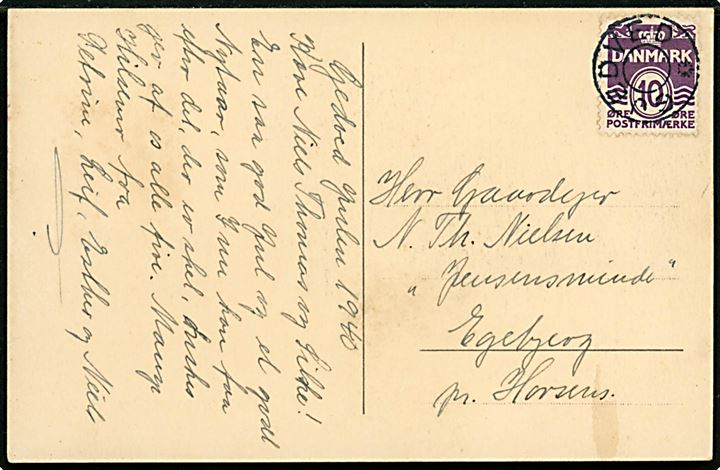 Gedved Julen 1940
Kære Niels Thomas og Sitne!
En saa god Jul og et godt
Nytaar, som I nu kan faa
efter det, der er sket, ønskes
jer af os alle fire. Mange
Hilsner fra
Petrine, Leif, Esther og Niels
GEDVED
1570
DANMARK
10
ØRE ØRE
POSTFRIMÆRKE
Herr Gaardejer
N. Th. Nielsen
"Jensensminde"
Egebjerg
pr. Horsens.